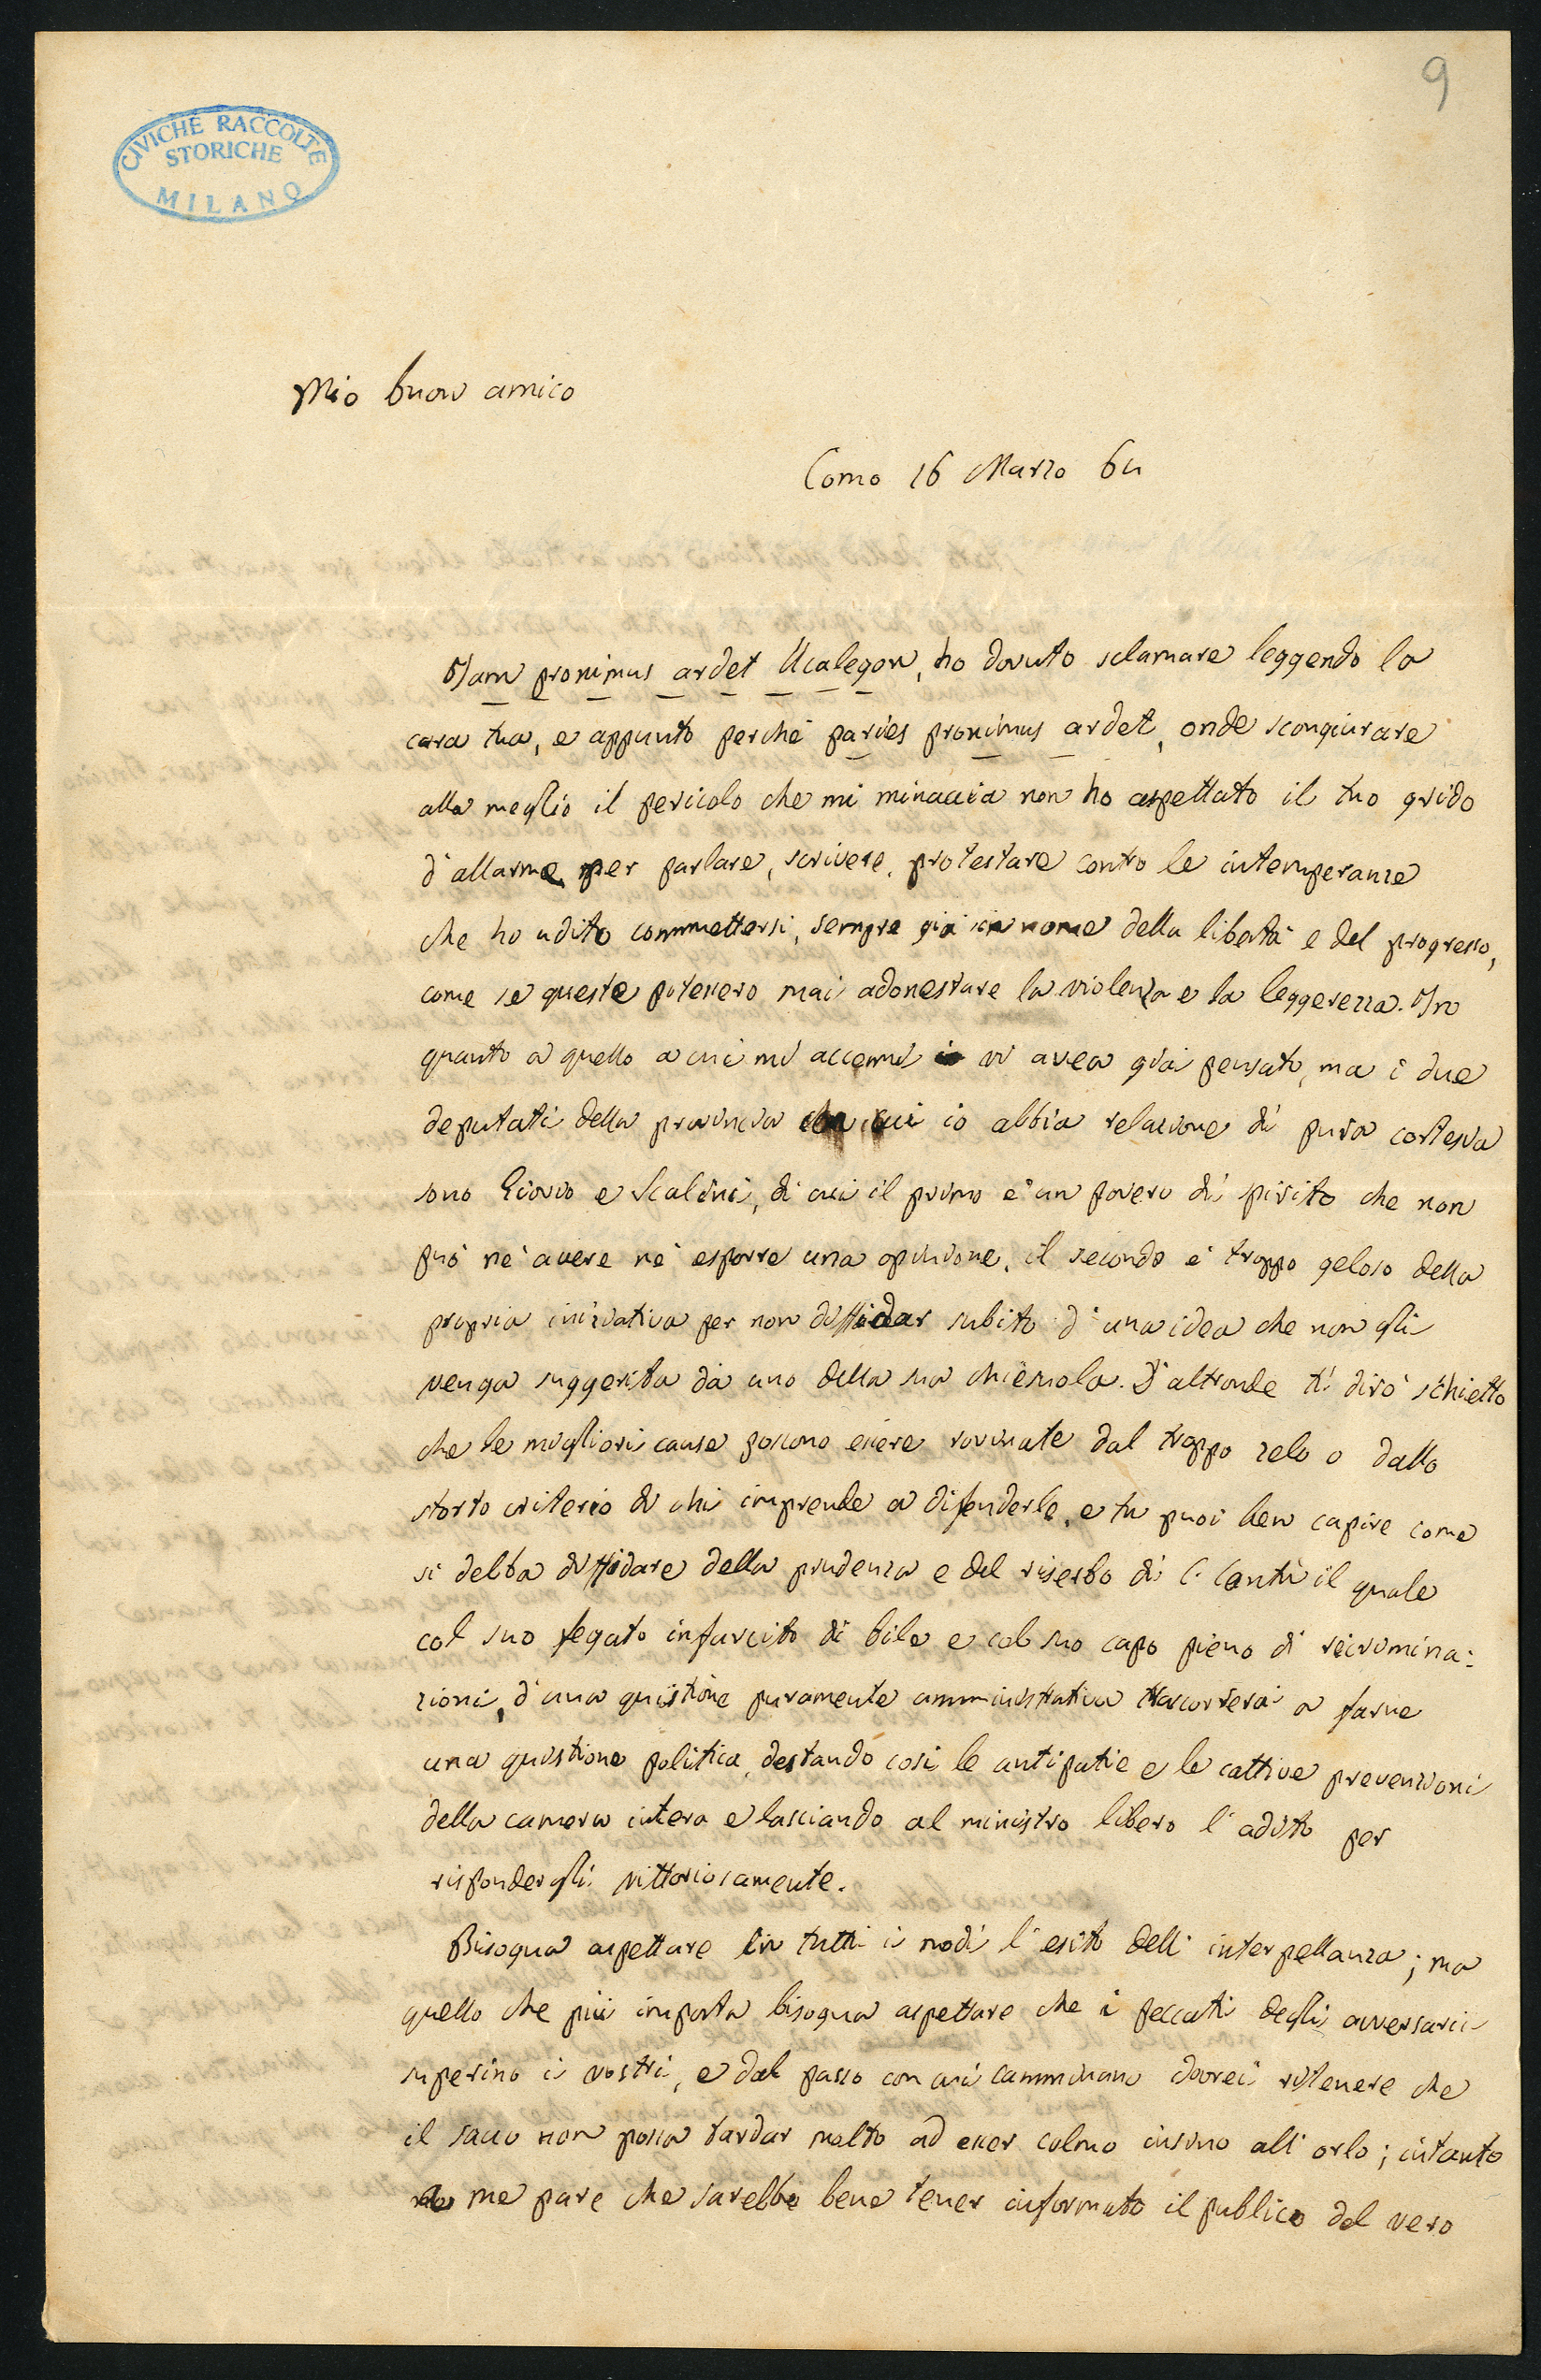 9
CIVICHE RACCOLTE
STORICHE
MILANO
Mio buon amico
Como 16 Marzo 64
Jam proximus ardet Ucalegon, ho dovuto sclamare leggendo la
cara tua, e appunto perché paries proximus ardet, onde scongiurare
alla meglio il pericolo che mi minaccia non ho aspettato il tuo grido
d'allarme per parlare, scrivere, protestare contro le intemperanze
che ho udito commettersi, sempre già in nome della libertà e del progresso,
come se queste potessero mai adonestare la violenza e la leggerezza. In
quanto a quello a cui mi accenni vi avea già pensato, ma i due
deputati della provincia con cui io abbia relazione di pura cortesia
sono Giovio e Scalini, di cui il primo è un povero di spirito che non
può nè avere nè esporre una opinione, il secondo è troppo geloso della
propria iniziativa per non diffidar subito d'una idea che non gli
venga suggerita da uno della sua chiesuola. D'altronde ti dirò schietto
che le migliori cause possono essere rovinate dal troppo zelo o dallo
storto criterio di chi imprende a difenderle, e tu puoi ben capire come
si debba diffidare della prudenza e del riserbo di C. Cantù il quale
col suo fegato infarcito di bile e col suo capo pieno di recrimina:
zioni, d'una quistione puramente amministrativa trascorrerà a farne
una quistione politica, destando così le antipatie e le cattive prevenzioni
della camera intera e lasciando al ministro libero l'adito per
rispondergli vittoriosamente.
Bisogna aspettare in tutti i modi l'esito dell'interpellanza; ma
quello che più importa bisogna aspettare che i peccati degli avversarii
superino i vostri, e dal passo con cui camminano dovrei ritenere che
il sacco non possa tardar molto ad esser colmo insino all'orlo; intanto
a me pare che sarebbe bene tener informato il publico del vero